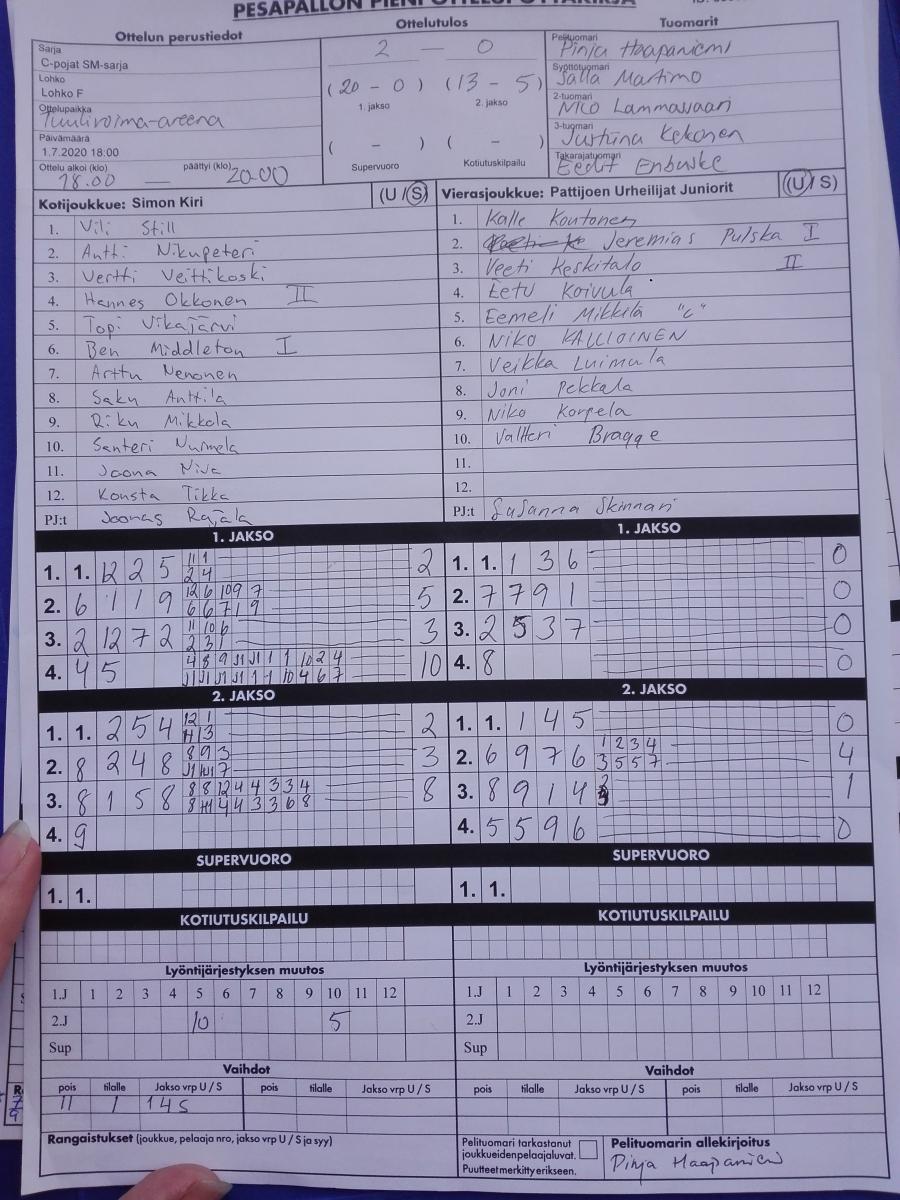 PESÄPALLON PIENI OTTELUPÖYTÄKIRJA
Ottelun perustiedot
Ottelutulos
Tuomarit
Sarja
C-pojat SM-sarja
Lohko
Lohko F
Ottelupaikka
Tuulivoima-areena
Päivämäärä
1.7.2020 18:00
Ottelu alkoi (klo) päättyi (klo)
18.00 — 20.00
2 — 0
(20 - 0) (13 - 5)
1. jakso 2. jakso
( - ) ( - )
Supervuoro Kotiutuskilpailu
Pelituomari
Pinja Haapaniemi
Syöttötuomari
Salla Martimo
2-tuomari
Nico Lammassaari
3-tuomari
Justiina Kekonen
Takarajatuomari
Eedit Enbuske
Kotijoukkue: Simon Kiri (U / S)
1. Vili Still
2. Antti Nikupeteri
3. Vertti Veittikoski
4. Hannes Okkonen II
5. Topi Vikajärvi
6. Ben Middleton I
7. Arttu Nenonen
8. Saku Anttila
9. Riku Mikkola
10. Santeri Nurmela
11. Joona Niva
12. Konsta Tikka
PJ:t Joonas Rajala
Vierasjoukkue: Pattijoen Urheilijat Juniorit (U / S)
1. Kalle Koutonen
2. Jeremias Pulska I
3. Veeti Keskitalo II
4. Eetu Koivula
5. Eemeli Mikkilä "c"
6. NIKO KALLIOINEN
7. Veikka Luimula
8. Joni Pekkala
9. Niko Korpela
10. Valtteri Bragge
11.
12.
PJ:t Susanna Skinnari
1. JAKSO
1. 1. 12 2 5 11 1 2
2 4
2. 6 1 1 9 12 6 10 9 7 5
6 6 7 1 9
3. 2 12 7 2 11 10 6 3
2 3 1
4. 4 5 4 8 9 11 11 1 1 10 2 4 10
11 11 11 11 1 1 10 4 6 7
1. JAKSO
1. 1. 1 3 6 0
2. 7 7 9 1 0
3. 2 5 3 7 0
4. 8 0
2. JAKSO
1. 1. 2 5 4 12 1 2
11 3
2. 8 2 4 8 8 9 3 3
11 11 7
3. 8 1 5 8 8 8 12 4 4 3 3 4 8
8 11 4 4 3 3 6 8
4. 9
2. JAKSO
1. 1. 1 4 5 0
2. 6 9 7 6 1 2 3 4 4
3 5 5 7
3. 8 9 1 4 1
4. 5 5 9 6 0
SUPERVUORO
1. 1.
SUPERVUORO
1. 1.
KOTIUTUSKILPAILU
KOTIUTUSKILPAILU
Lyöntijärjestyksen muutos
1.J 1 2 3 4 5 6 7 8 9 10 11 12
2.J 10 5
Sup
Lyöntijärjestyksen muutos
1.J 1 2 3 4 5 6 7 8 9 10 11 12
2.J
Sup
Vaihdot
pois tilalle Jakso vrp U / S pois tilalle Jakso vrp U / S
11 1 1 4 S
Vaihdot
pois tilalle Jakso vrp U / S pois tilalle Jakso vrp U / S
Rangaistukset (joukkue, pelaaja nro, jakso vrp U / S ja syy)
Pelituomari tarkastanut
joukkueiden pelaajaluvat.
Puutteet merkitty erikseen.
Pelituomarin allekirjoitus
Pinja Haapaniemi